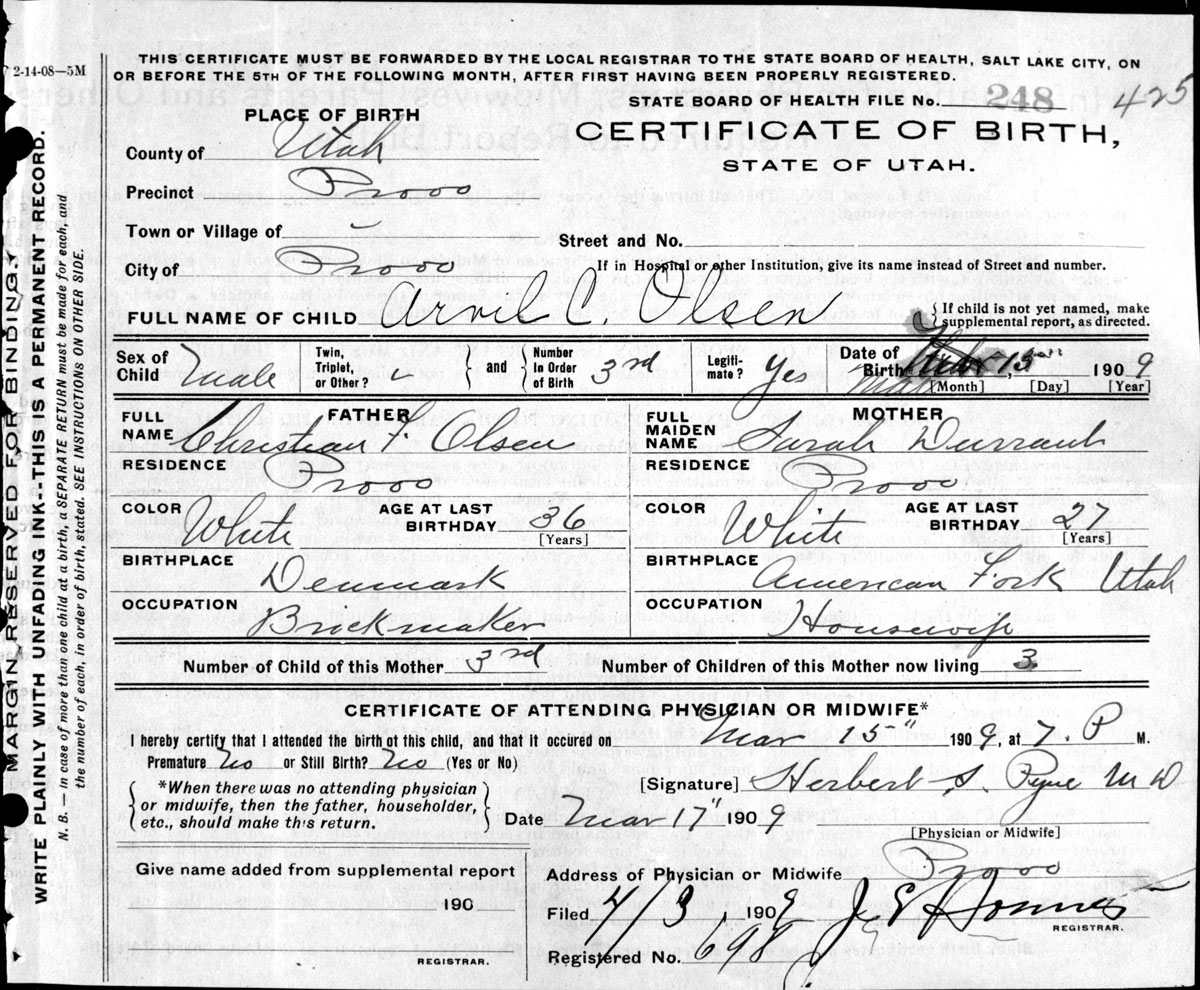 2-14-08—5M
MARGIN RESERVED FOR BINDING.
WRITE PLAINLY WITH UNFADING INK--THIS IS A PERMANENT RECORD.
N. B. — In case of more than one child at a birth, a SEPARATE RETURN must be made for each, and
the number of each, in order of birth, stated. SEE INSTRUCTIONS ON OTHER SIDE.
THIS CERTIFICATE MUST BE FORWARDED BY THE LOCAL REGISTRAR TO THE STATE BOARD OF HEALTH, SALT LAKE CITY, ON
OR BEFORE THE 5TH OF THE FOLLOWING MONTH, AFTER FIRST HAVING BEEN PROPERLY REGISTERED.
STATE BOARD OF HEALTH FILE No. 248 425
PLACE OF BIRTH
CERTIFICATE OF BIRTH,
STATE OF UTAH.
County of Utah
Precinct Provo
Town or Village of
Street and No.
City of Provo
If in Hospital or other Institution, give its name instead of Street and number.
FULL NAME OF CHILD Arvil C. Olsen { If child is not yet named, make
supplemental report, as directed.
Sex of Child Male Twin, Triplet, or Other? } and { Number In Order of Birth 3rd Legiti-mate? Yes Date of Birth Mar 15 1909
[Month] [Day] [Year]
FATHER
FULL NAME Christian F. Olsen
RESIDENCE Provo
COLOR White AGE AT LAST BIRTHDAY 36 [Years]
BIRTHPLACE Denmark
OCCUPATION Brickmaker
MOTHER
FULL MAIDEN NAME Sarah Durrant
RESIDENCE Provo
COLOR White AGE AT LAST BIRTHDAY 27 [Years]
BIRTHPLACE American Fork Utah
OCCUPATION Housewife
Number of Child of this Mother 3rd Number of Children of this Mother now living 3
CERTIFICATE OF ATTENDING PHYSICIAN OR MIDWIFE*
I hereby certify that I attended the birth of this child, and that it occured on Mar 15" 1909, at 7. P M.
Premature No or Still Birth? No (Yes or No)
{ *When there was no attending physician
or midwife, then the father, householder,
etc., should make this return. }
[Signature] Herbert S. Pyne M D
Date Mar 17" 1909
[Physician or Midwife]
Give name added from supplemental report
190
REGISTRAR.
Address of Physician or Midwife Provo
Filed 4/3, 1909
REGISTRAR.
Registered No. 698